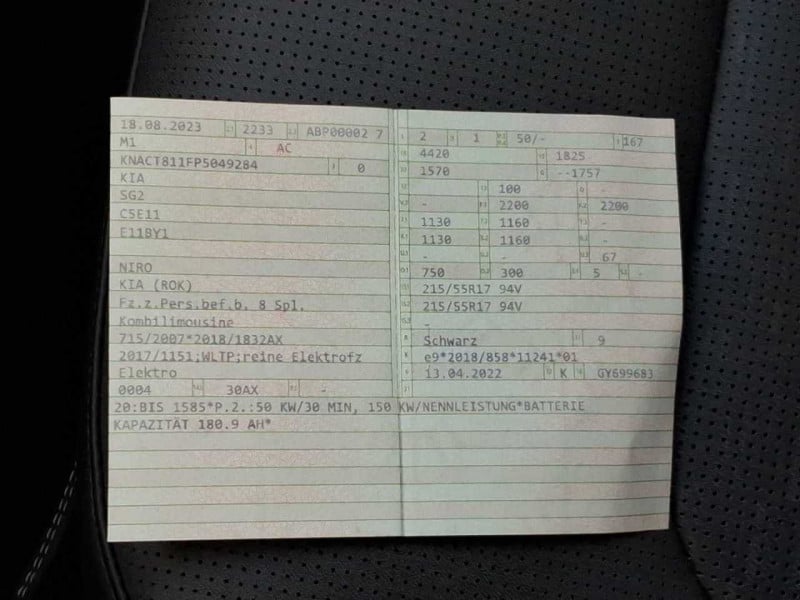 18.08.2023 2233 ABP00002 7
M1 AC
KNACT811FP5049284 0
KIA
SG2
C5E11
E11BY1
NIRO
KIA (ROK)
Fz.z.Pers.bef.b. 8 Spl.
Kombilimousine
715/2007*2018/1832AX
2017/1151;WLTP;reine Elektrofz
Elektro
0004 30AX -
2 1 50/- 167
4420 1825
1570 --1757
100 -
- 2200 2200
1130 1160 -
1130 1160 -
- - 67
750 300 5 -
215/55R17 94V
215/55R17 94V
-
Schwarz 9
e9*2018/858*11241*01
13.04.2022 K GY699683
20:BIS 1585*P.2.:50 KW/30 MIN, 150 KW/NENNLEISTUNG*BATTERIE
KAPAZITÄT 180.9 AH*